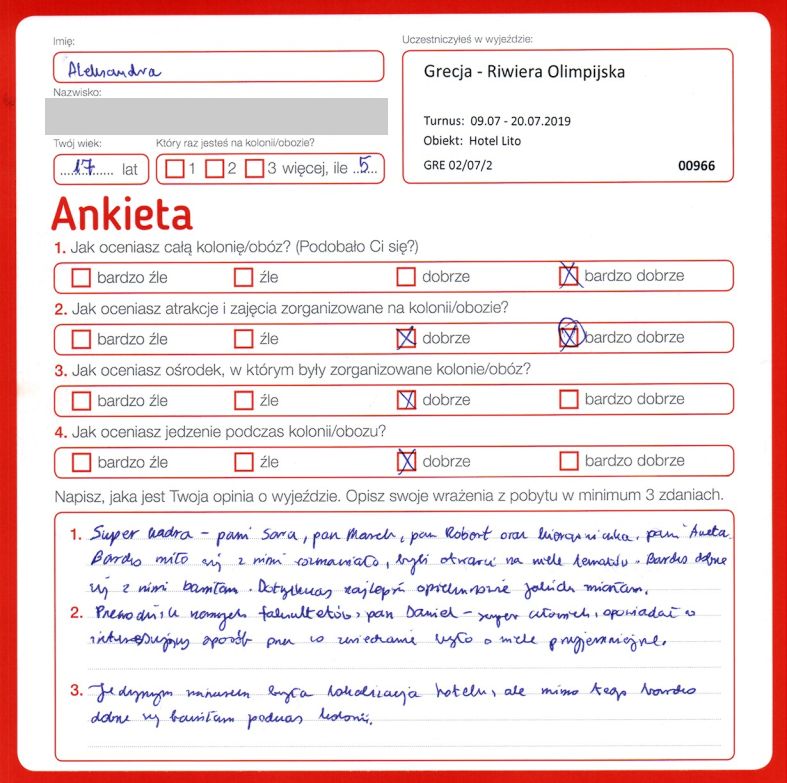 Imię:
Aleksandra
Nazwisko:
Twój wiek:
17 lat
Który raz jesteś na kolonii/obozie?
1 2 3 więcej, ile 5
Uczestniczyłeś w wyjeździe:
Grecja - Riwiera Olimpijska
Turnus: 09.07 - 20.07.2019
Obiekt: Hotel Lito
GRE 02/07/2 00966
Ankieta
1. Jak oceniasz całą kolonię/obóz? (Podobało Ci się?)
bardzo źle źle dobrze bardzo dobrze
2. Jak oceniasz atrakcje i zajęcia zorganizowane na kolonii/obozie?
bardzo źle źle dobrze bardzo dobrze
3. Jak oceniasz ośrodek, w którym były zorganizowane kolonie/obóz?
bardzo źle źle dobrze bardzo dobrze
4. Jak oceniasz jedzenie podczas kolonii/obozu?
bardzo źle źle dobrze bardzo dobrze
Napisz, jaka jest Twoja opinia o wyjeździe. Opisz swoje wrażenia z pobytu w minimum 3 zdaniach.
1. Super kadra - pani Sara, pan Marek, pan Robert oraz kierowniczka, pani Aneta.
Bardzo miło się z nimi rozmawiało, byli otwarci na wiele tematów. Bardzo dobrze
się z nimi bawiłam. Dotychczas najlepsi opiekunowie jakich miałam.
2. Przewodnik naszych fakultetów, pan Daniel - super człowiek, opowiadał w
interesujący sposób przez co zwiedzanie było o wiele przyjemniejsze.
3. Jedynym minusem była lokalizacja hotelu, ale mimo tego bardzo
dobrze się bawiłam podczas kolonii.